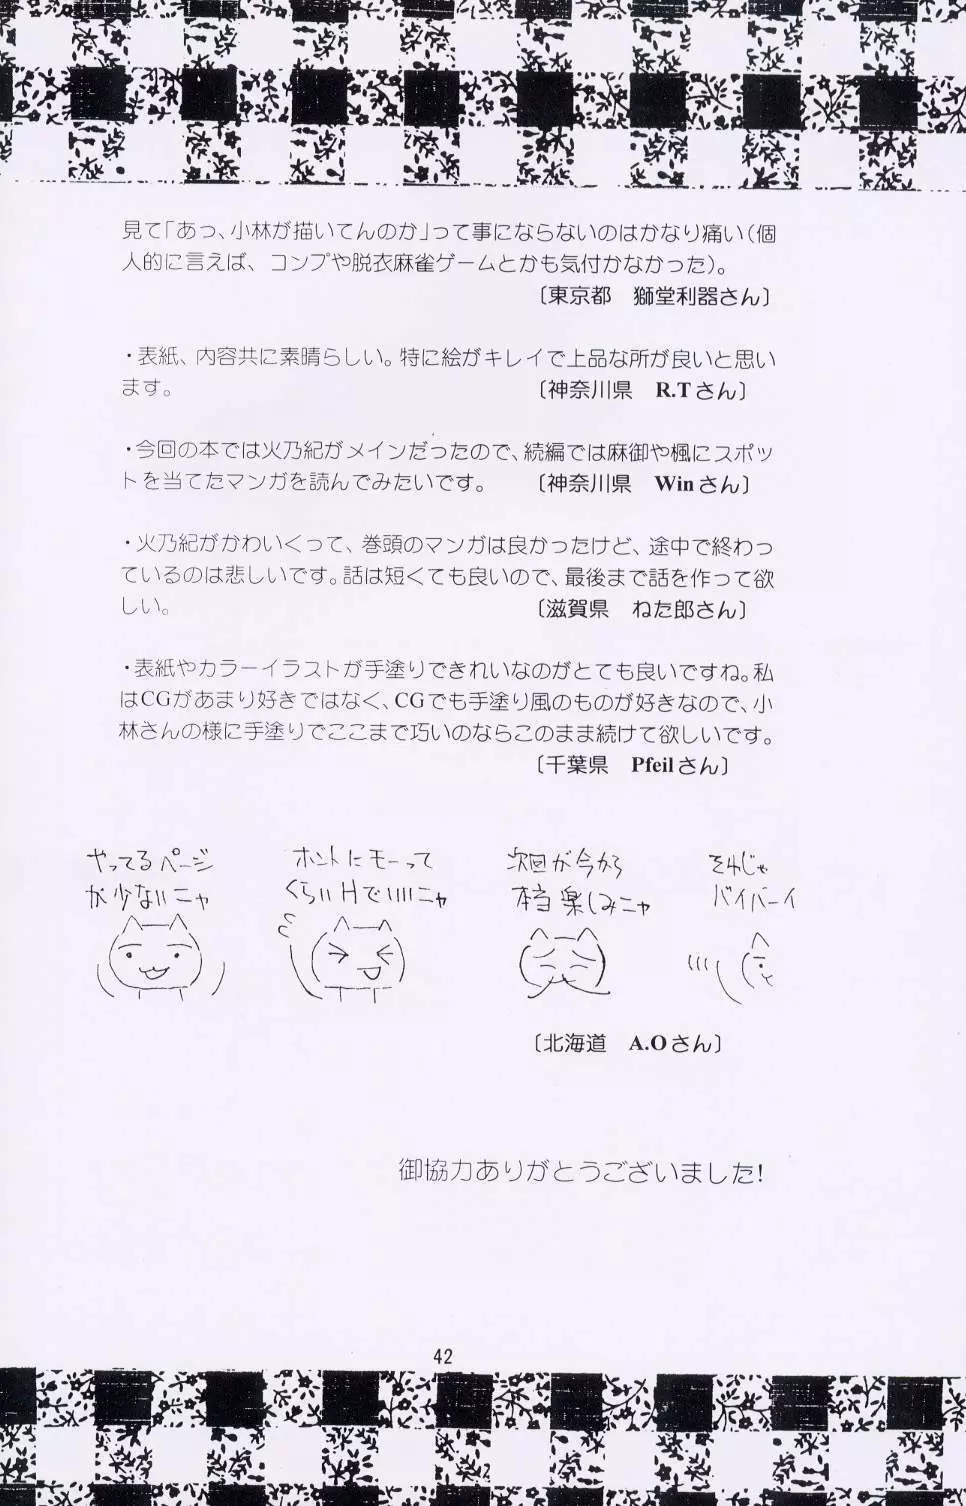 見て「あっ、小林が描いてんのか」って事にならないのはかなり痛い（個
人的に言えば、コンプや脱衣麻雀ゲームとかも気付かなかった）。
〔東京都　獅堂利器さん〕
・表紙、内容共に素晴らしい。特に絵がキレイで上品な所が良いと思い
ます。　〔神奈川県　R.Tさん〕
・今回の本では火乃紀がメインだったので、続編では麻御や楓にスポッ
トを当てたマンガを読んでみたいです。　〔神奈川県　Winさん〕
・火乃紀がかわいくって、巻頭のマンガは良かったけど、途中で終わっ
ているのは悲しいです。話は短くても良いので、最後まで話を作って欲
しい。　〔滋賀県　ねた郎さん〕
・表紙やカラーイラストが手塗りできれいなのがとても良いですね。私
はCGがあまり好きではなく、CGでも手塗り風のものが好きなので、小
林さんの様に手塗りでここまで巧いのならこのまま続けて欲しいです。
〔千葉県　Pfeilさん〕
やってるページ
が少ないニャ
ホントにモーって
くらいHでいいニャ
次回が今から
本当楽しみニャ
それじゃ
バイバーイ
〔北海道　A.Oさん〕
御協力ありがとうございました!
42